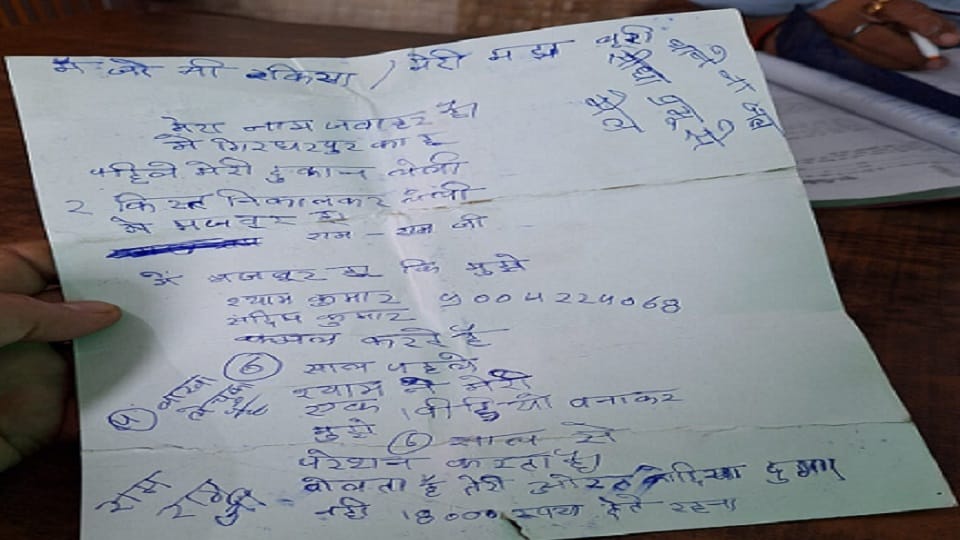 मै जो भी रकिया / मेरी मझ बुरी
थाने ना जावे
सीधा प्रम से
मेरा नाम जवाहर है।
मै गिरधरपुर का है
पहिले मेरी दुकान लेली
2 किस्त निकालकर लेली
मे मजबूर हू
राम - राम जी
मैं मजबूर हू कि मुझे
श्याम कुमार 9004224068
संदिप कुमार
कत्रल करते है
6 साल पहले
श्याम ने मेरी
एक विडियो बनाकर
मुझे 6 साल से
परेशान करता है।
बोलता है तेरी औरत को दिखा दुगा
नही 18000 रूपया देते रहना
राम